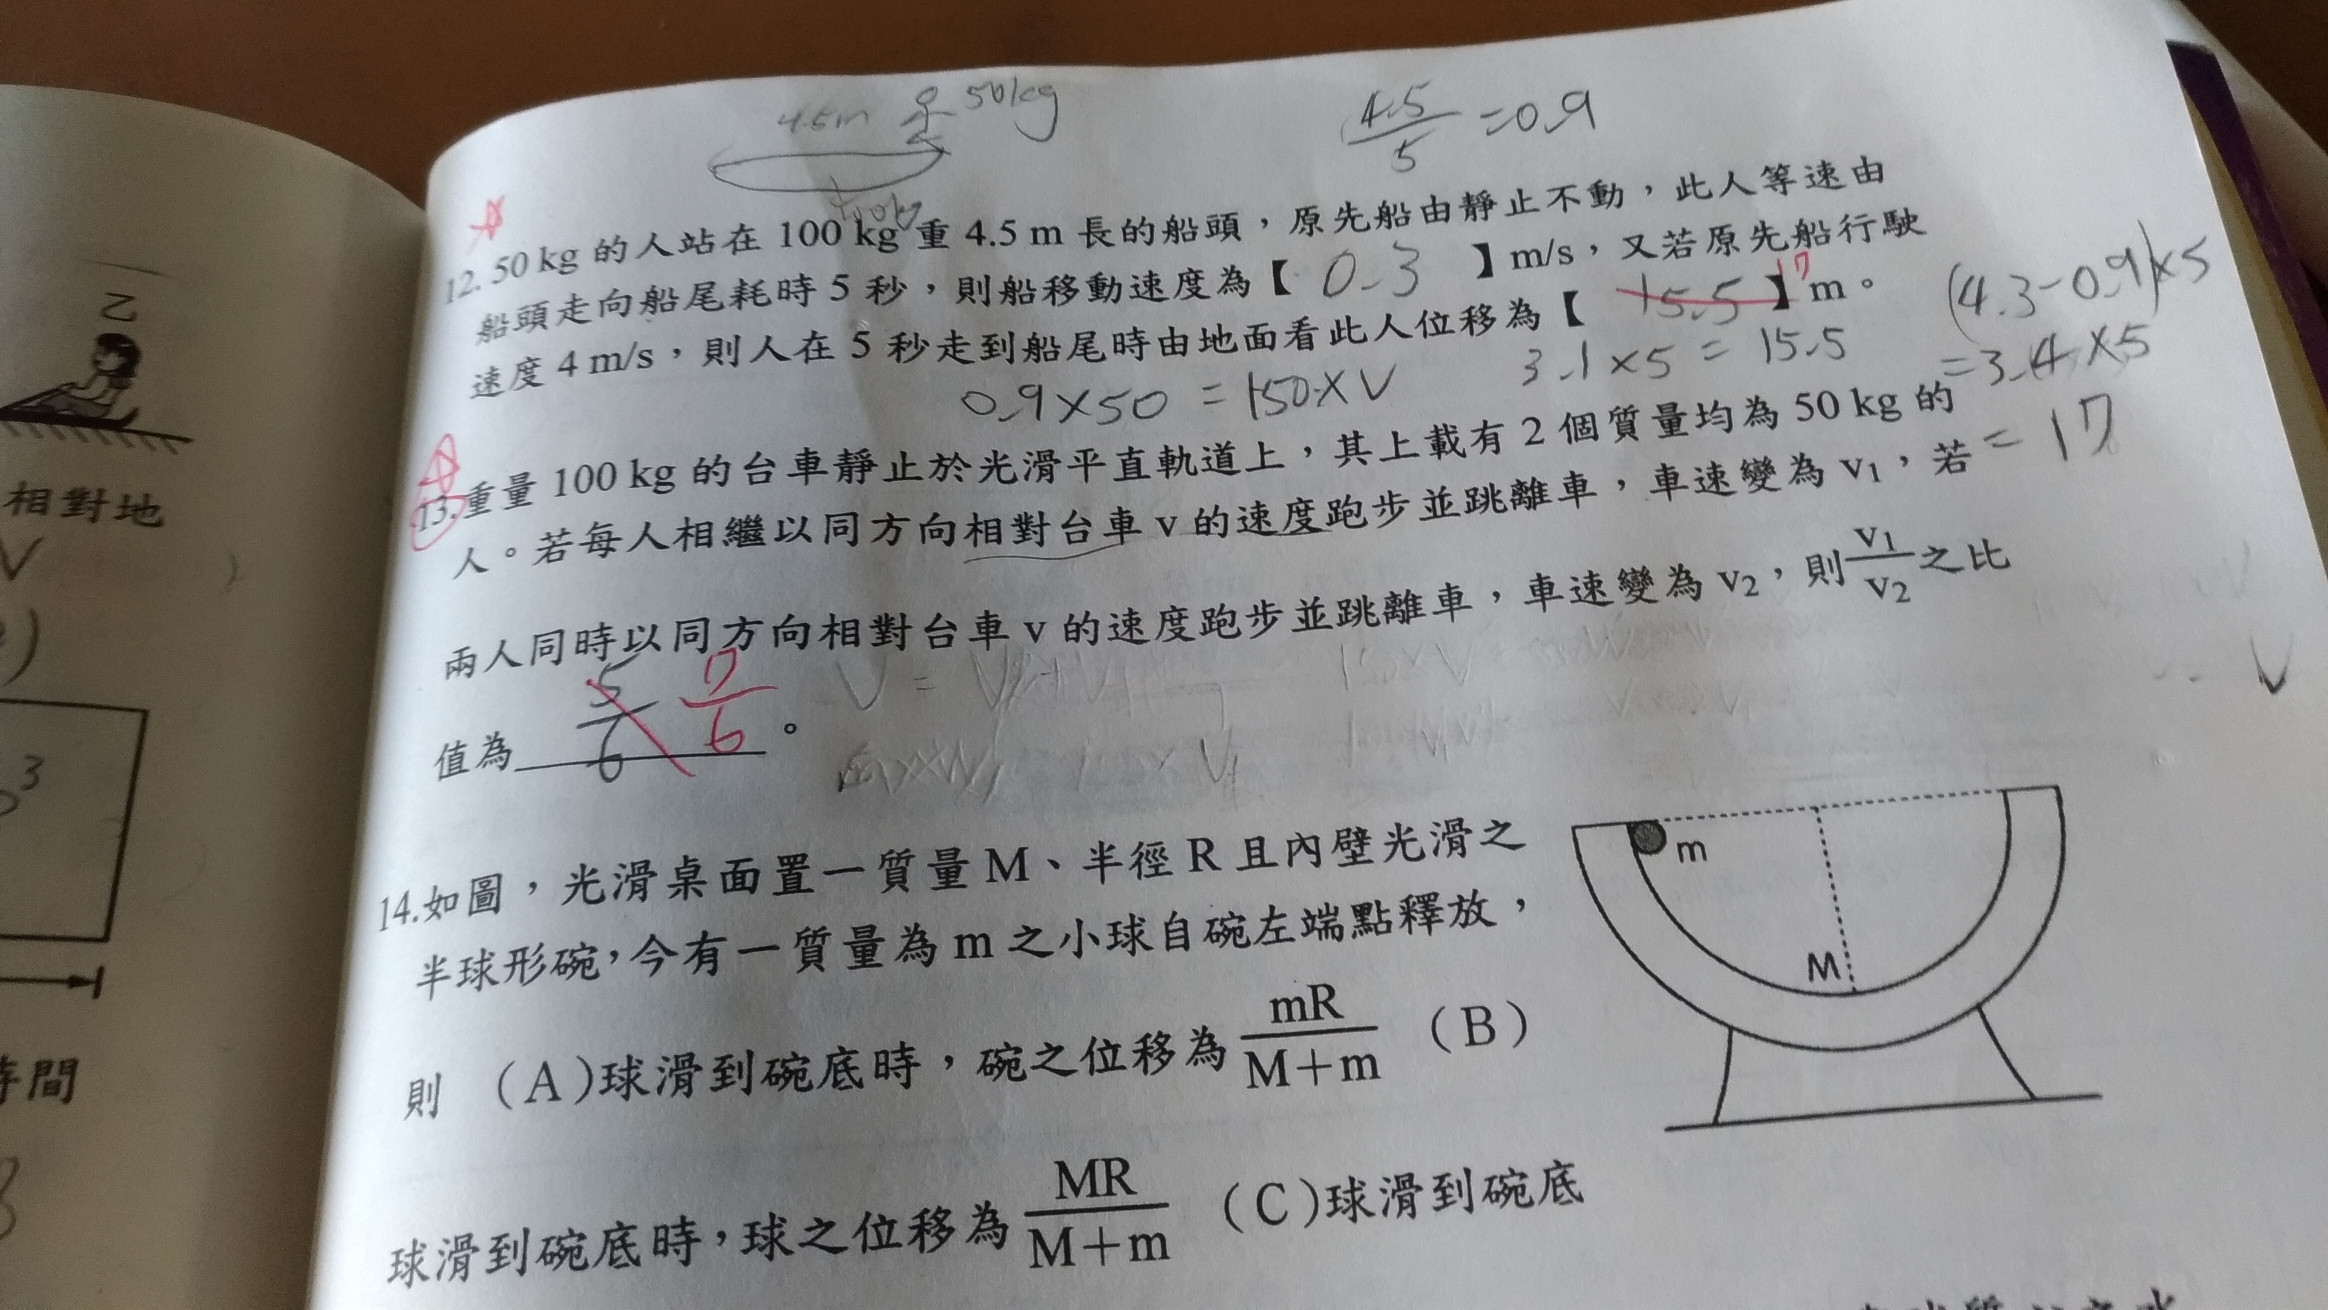 4.5m 50kg
4.5/5 =0.9
12. 50 kg 的人站在 100 kg 重 4.5 m 長的船頭，原先船由靜止不動，此人等速由
船頭走向船尾耗時 5 秒，則船移動速度為【 0.3 】m/s，又若原先船行駛
速度 4 m/s，則人在 5 秒走到船尾時由地面看此人位移為【 15.5 】m。
17
(4.3-0.9)×5
=3.4×5
=17
3.1×5=15.5
0.9×50=150×V
13.重量 100 kg 的台車靜止於光滑平直軌道上，其上載有 2 個質量均為 50 kg 的
人。若每人相繼以同方向相對台車 v 的速度跑步並跳離車，車速變為 v₁，若
兩人同時以同方向相對台車 v 的速度跑步並跳離車，車速變為 v₂，則 v₁/v₂ 之比
值為 5/6 7/6 。
14.如圖，光滑桌面置一質量 M、半徑 R 且內壁光滑之
半球形碗，今有一質量為 m 之小球自碗左端點釋放，
則 （A）球滑到碗底時，碗之位移為 mR/M+m （B）
球滑到碗底時，球之位移為 MR/M+m （C）球滑到碗底
m
M
乙
相對地
V
3
時間